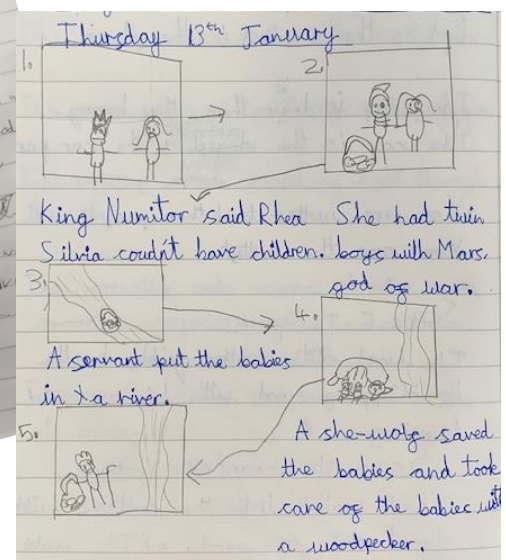 Thursday 13th January
1.
2.
King Numitor said Rhea
Silvia coudn't have children.
She had twin
boys with Mars,
god of war.
3.
A servant put the babies
in a river.
4.
A she-wolf saved
the babies and took
care of the babies with
a woodpecker.
5.